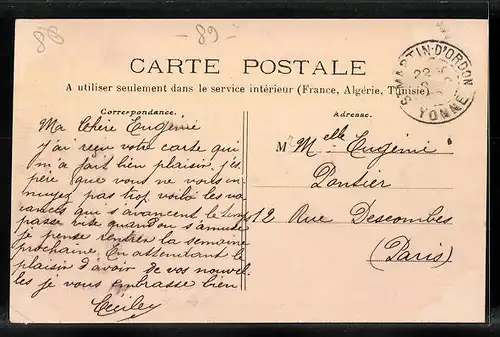 88
- 89 -
CARTE POSTALE
A utiliser seulement dans le service intérieur (France, Algérie, Tunisie)
St MARTIN-D'ORDON
22
YONNE
Correspondance.
Ma Chère Eugénie
j'ai reçu votre carte qui
m'a fait bien plaisir, j'es
père que vous ne vous en
nuyez pas trop, voilà les va
cances qui s'avancent le temps
passe vite quand on s'amuse
je pense rentrer la semaine
prochaine. En attendant le
plaisir d'avoir de vos nouvel
les je vous embrasse bien
Adresse.
M Melle Eugénie
Pontier
12 Rue Descombes
(Paris)